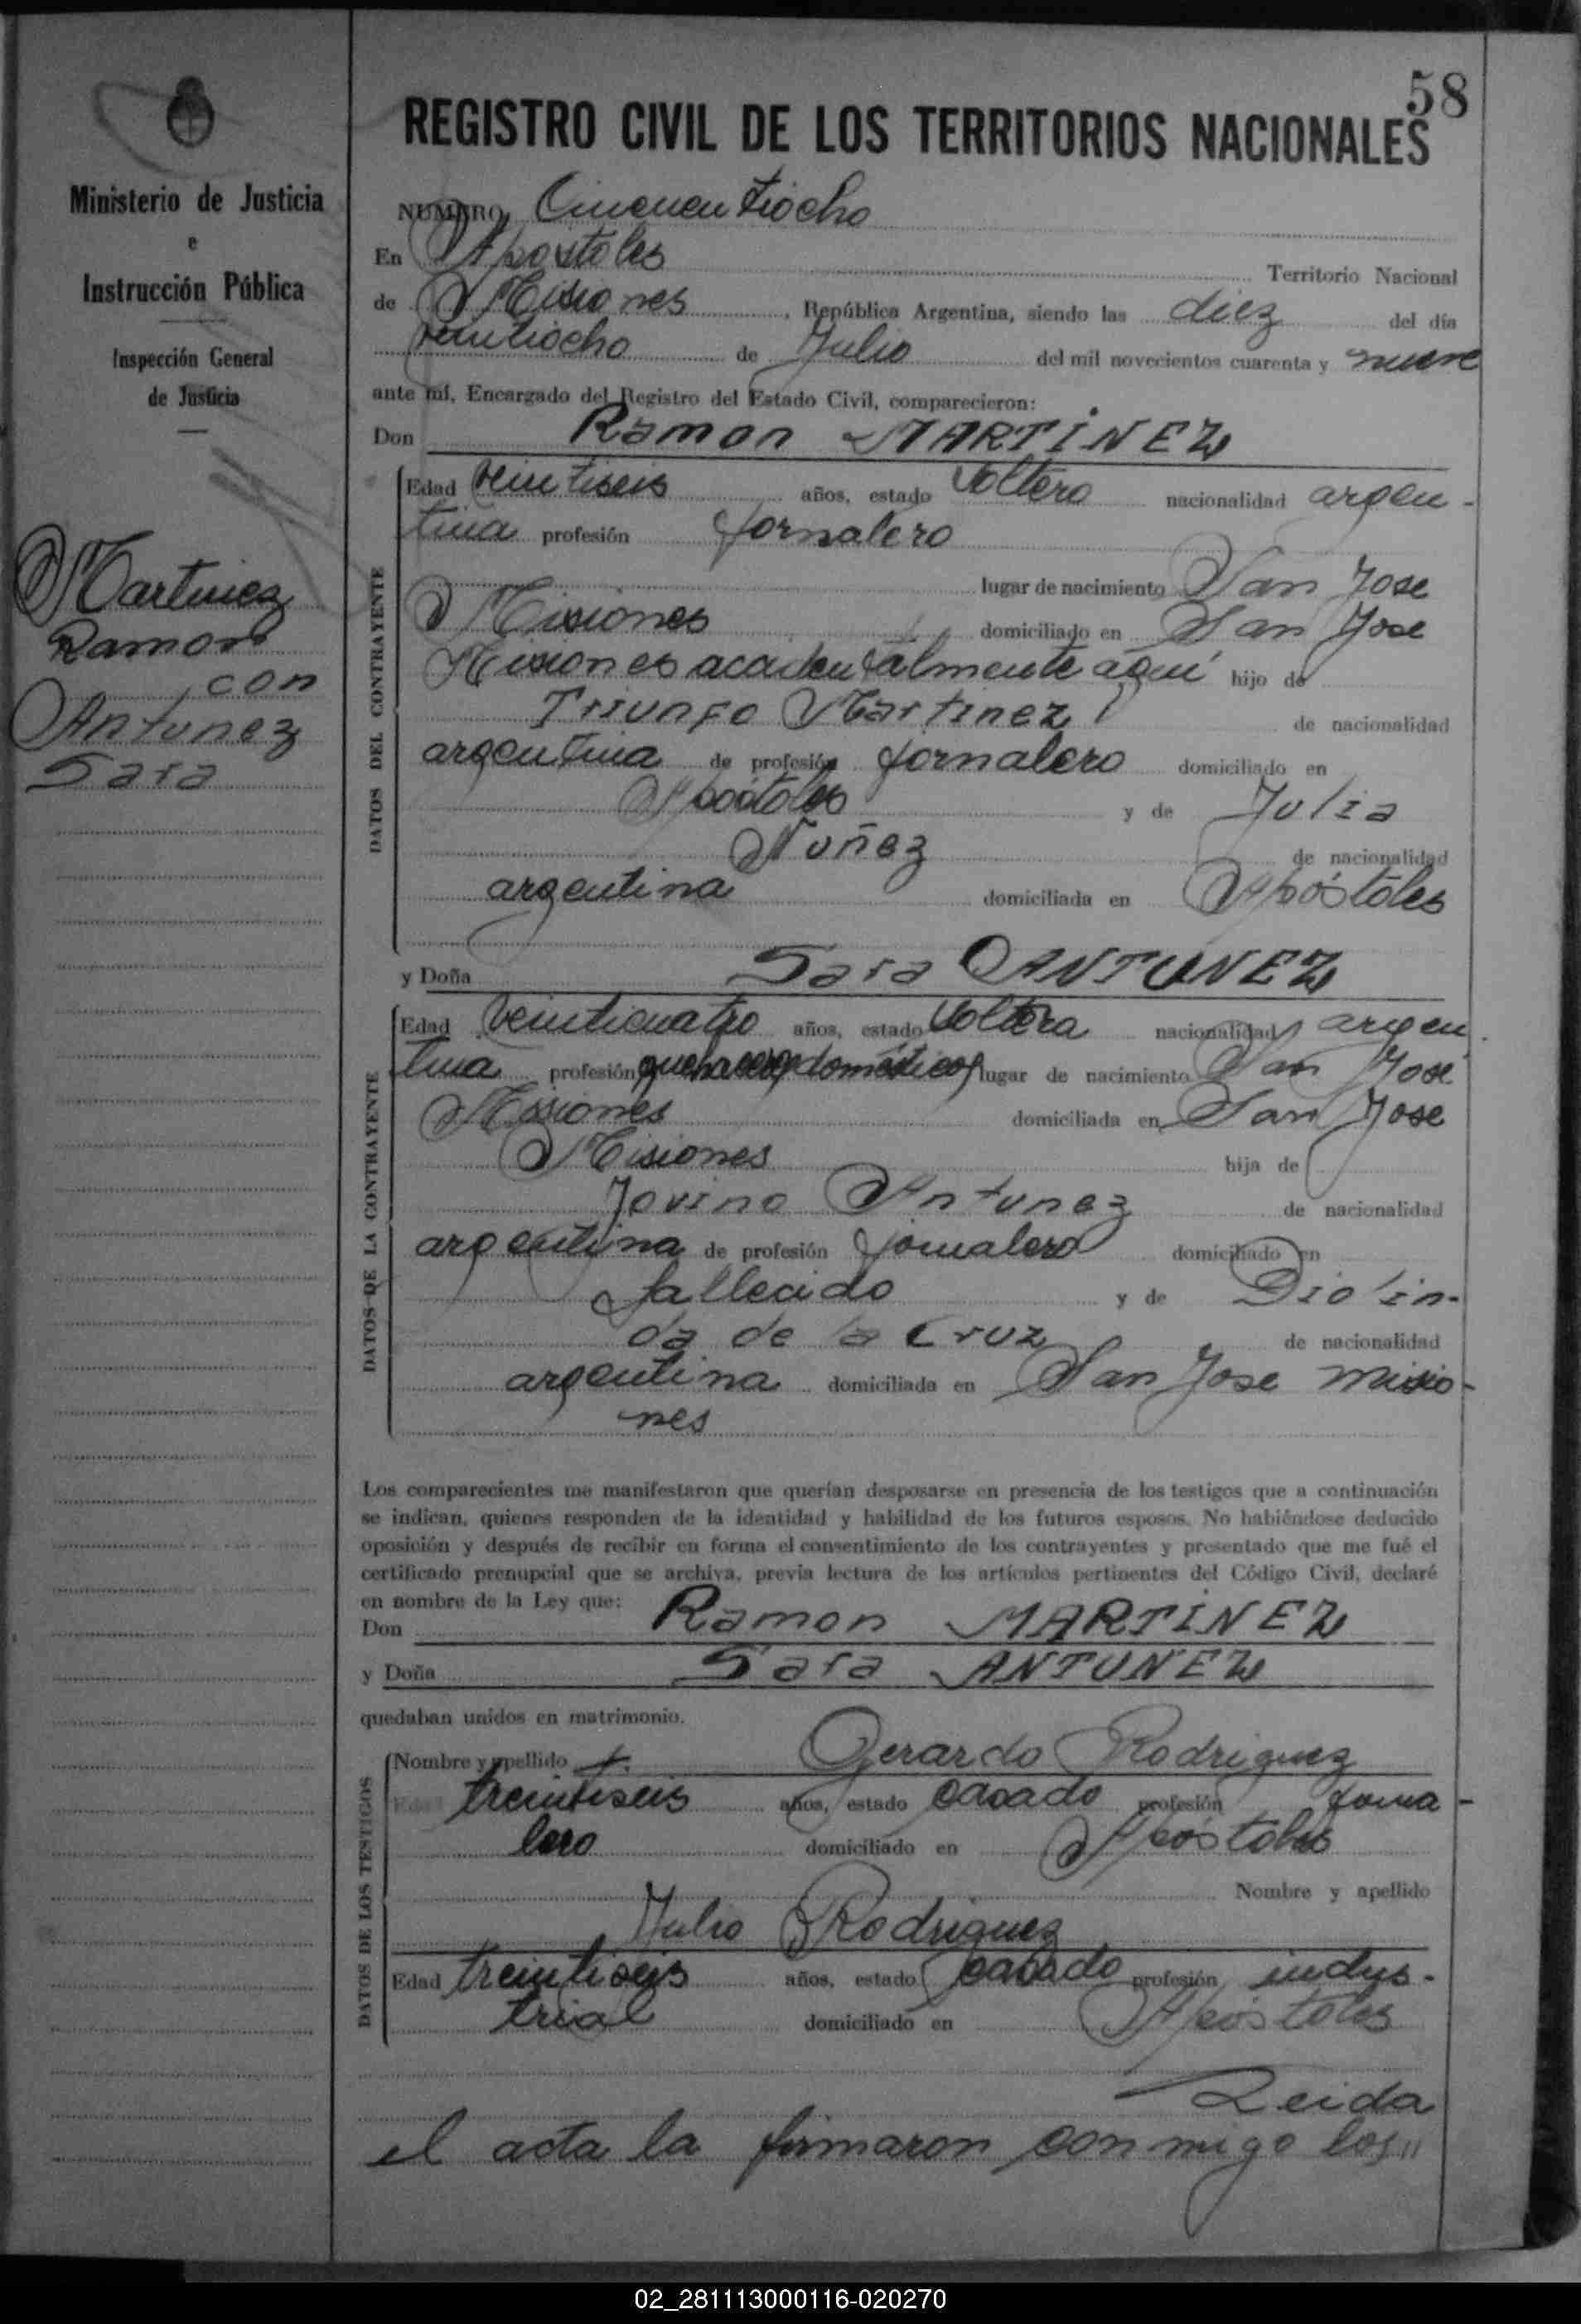 58
REGISTRO CIVIL DE LOS TERRITORIOS NACIONALES
Ministerio de Justicia
e
Instrucción Pública
Inspección General
de Justicia
Martinez
Ramon
con
Antunez
Sara
NUMERO Cincuentiocho
En Apostoles Territorio Nacional
de Misiones, República Argentina, siendo las diez del día
veintiocho de Julio del mil novecientos cuarenta y nueve
ante mí, Encargado del Registro del Estado Civil, comparecieron:
Don Ramon MARTINEZ
DATOS DEL CONTRAYENTE
Edad veintiseis años, estado soltero nacionalidad argen-
tina profesión jornalero
lugar de nacimiento San Jose
Misiones domiciliado en San Jose
Misiones accidentalmente aquí hijo de
Triunfo Martinez de nacionalidad
argentina de profesión jornalero domiciliado en
Apóstoles y de Julia
Nuñez de nacionalidad
argentina domiciliada en Apóstoles
y Doña Sara ANTUNEZ
DATOS DE LA CONTRAYENTE
Edad veinticuatro años, estado soltera nacionalidad argen
tina profesión quehaceres domésticos lugar de nacimiento San José
Misiones domiciliada en San Jose
Misiones hija de
Jovino Antunez de nacionalidad
argentina de profesión jornalero domiciliado en
fallecido y de Diolin-
da de la Cruz de nacionalidad
argentina domiciliada en San Jose misio-
nes
Los comparecientes me manifestaron que querían desposarse en presencia de los testigos que a continuación
se indican, quienes responden de la identidad y habilidad de los futuros esposos. No habiéndose deducido
oposición y después de recibir en forma el consentimiento de los contrayentes y presentado que me fué el
certificado prenupcial que se archiva, previa lectura de los artículos pertinentes del Código Civil, declaré
en nombre de la Ley que:
Don Ramon MARTINEZ
y Doña Sara ANTUNEZ
quedaban unidos en matrimonio.
DATOS DE LOS TESTIGOS
Nombre y apellido Gerardo Rodriguez
Edad treintiseis años, estado casado profesión jorna-
lero domiciliado en Apóstoles
Nombre y apellido
Julio Rodriguez
Edad treintiseis años, estado casado profesión indus-
trial domiciliado en Apóstoles
Leida
el acta la firmaron conmigo los
02_281113000116-020270